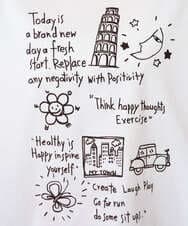 Today is
a brand new
day a fresh
start. Replace
any negativity with Positivity
"Think happy thoughts
Exercise"
"Healthy is
Happy inspire
yourself"
MY TOWN
"Create Laugh Play
Go for run
do some sit ups."